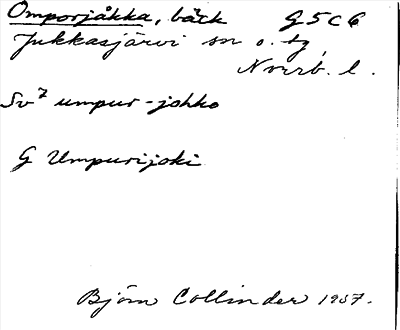 Omporjåkka, bäck G5C6
Jukkasjärvi sn o. tg,
Norrb. l.
Sv7 umpur-johko
G Umpurijoki
Björn Collinder 1957.